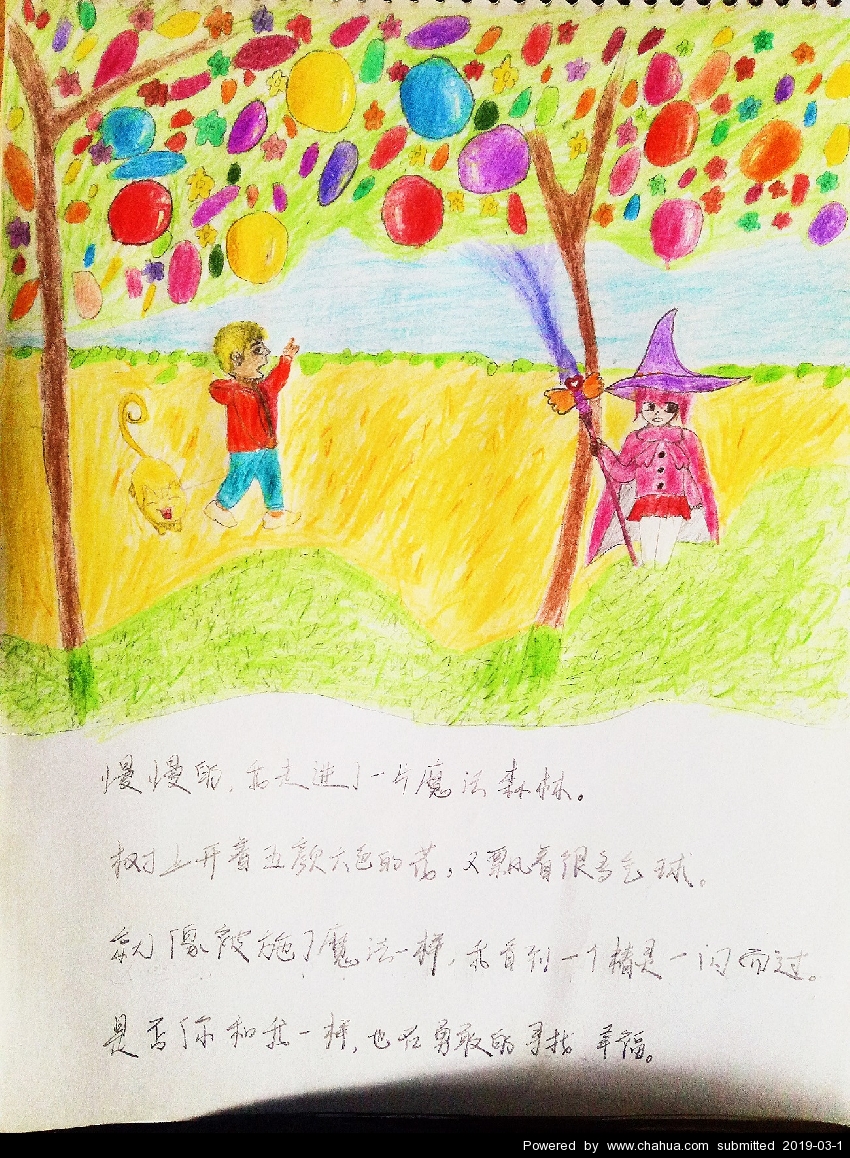 慢慢的，我走进了一片魔法森林。
树上开着五颜六色的花，又飘着很多气球。
就像被施了魔法一样，我看到一个精灵一闪而过。
是否你和我一样，也在勇敢的寻找幸福。
Powered by www.chahua.com submitted 2019-03-1